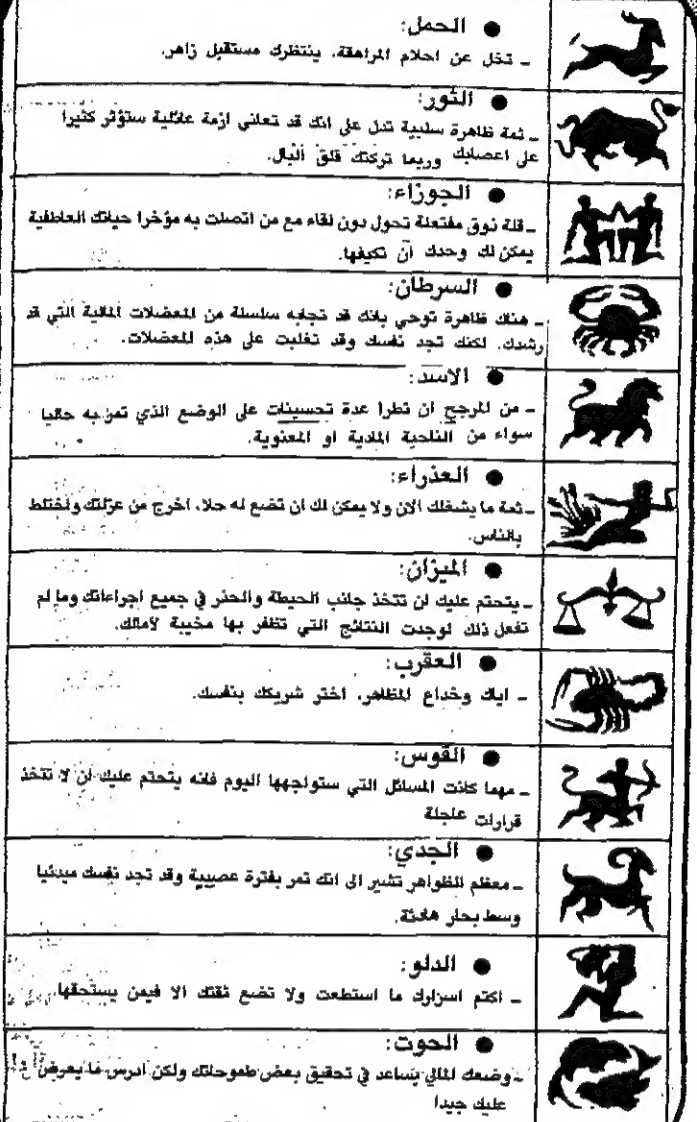 ● الحمل:
ـ تخل عن احلام المراهقة، ينتظرك مستقبل زاهر.
● الثور:
ـ ثمة ظاهرة سلبية تدل على انك قد تعاني ازمة عائلية ستؤثر كثيرا
على اعصابك وربما تركتك قلق البال.
● الجوزاء:
ـ قلة ذوق مفتعلة تحول دون لقاء مع من اتصلت به مؤخرا حياتك العاطفية
يمكن لك وحدك أن تكيفها.
● السرطان:
ـ هناك ظاهرة توحي بانك قد تجابه سلسلة من المعضلات المالية التي قد
رشدك، لكنك تجد نفسك وقد تغلبت على هذه المعضلات.
● الاسد:
ـ من المرجح ان تطرا عدة تحسينات على الوضع الذي تمر به حاليا
سواء من الناحية المادية او المعنوية.
● العذراء:
ـ ثمة ما يشغلك الان ولا يمكن لك ان تضع له حلا، اخرج من عزلتك واختلط
بالناس.
● الميزان:
ـ يتحتم عليك ان تتخذ جانب الحيطة والحذر في جميع اجراءاتك وما لم
تفعل ذلك لوجدت النتائج التي تظفر بها مخيبة لآمالك.
● العقرب:
ـ اياك وخداع المظاهر، اختر شريكك بنفسك.
● القوس:
ـ مهما كانت المسائل التي ستواجهها اليوم فانه يتحتم عليك ان لا تتخذ
قرارات عاجلة
● الجدي:
ـ معظم الظواهر تشير الى انك تمر بفترة عصيبة وقد تجد نفسك مبدئيا
وسط بحار هادئة.
● الدلو:
ـ اكتم اسرارك ما استطعت ولا تضع ثقتك الا فيمن يستحقها.
● الحوت:
ـ وضعك المالي يساعد في تحقيق بعض طموحاتك ولكن ادرس ما يعرض
عليك جيدا